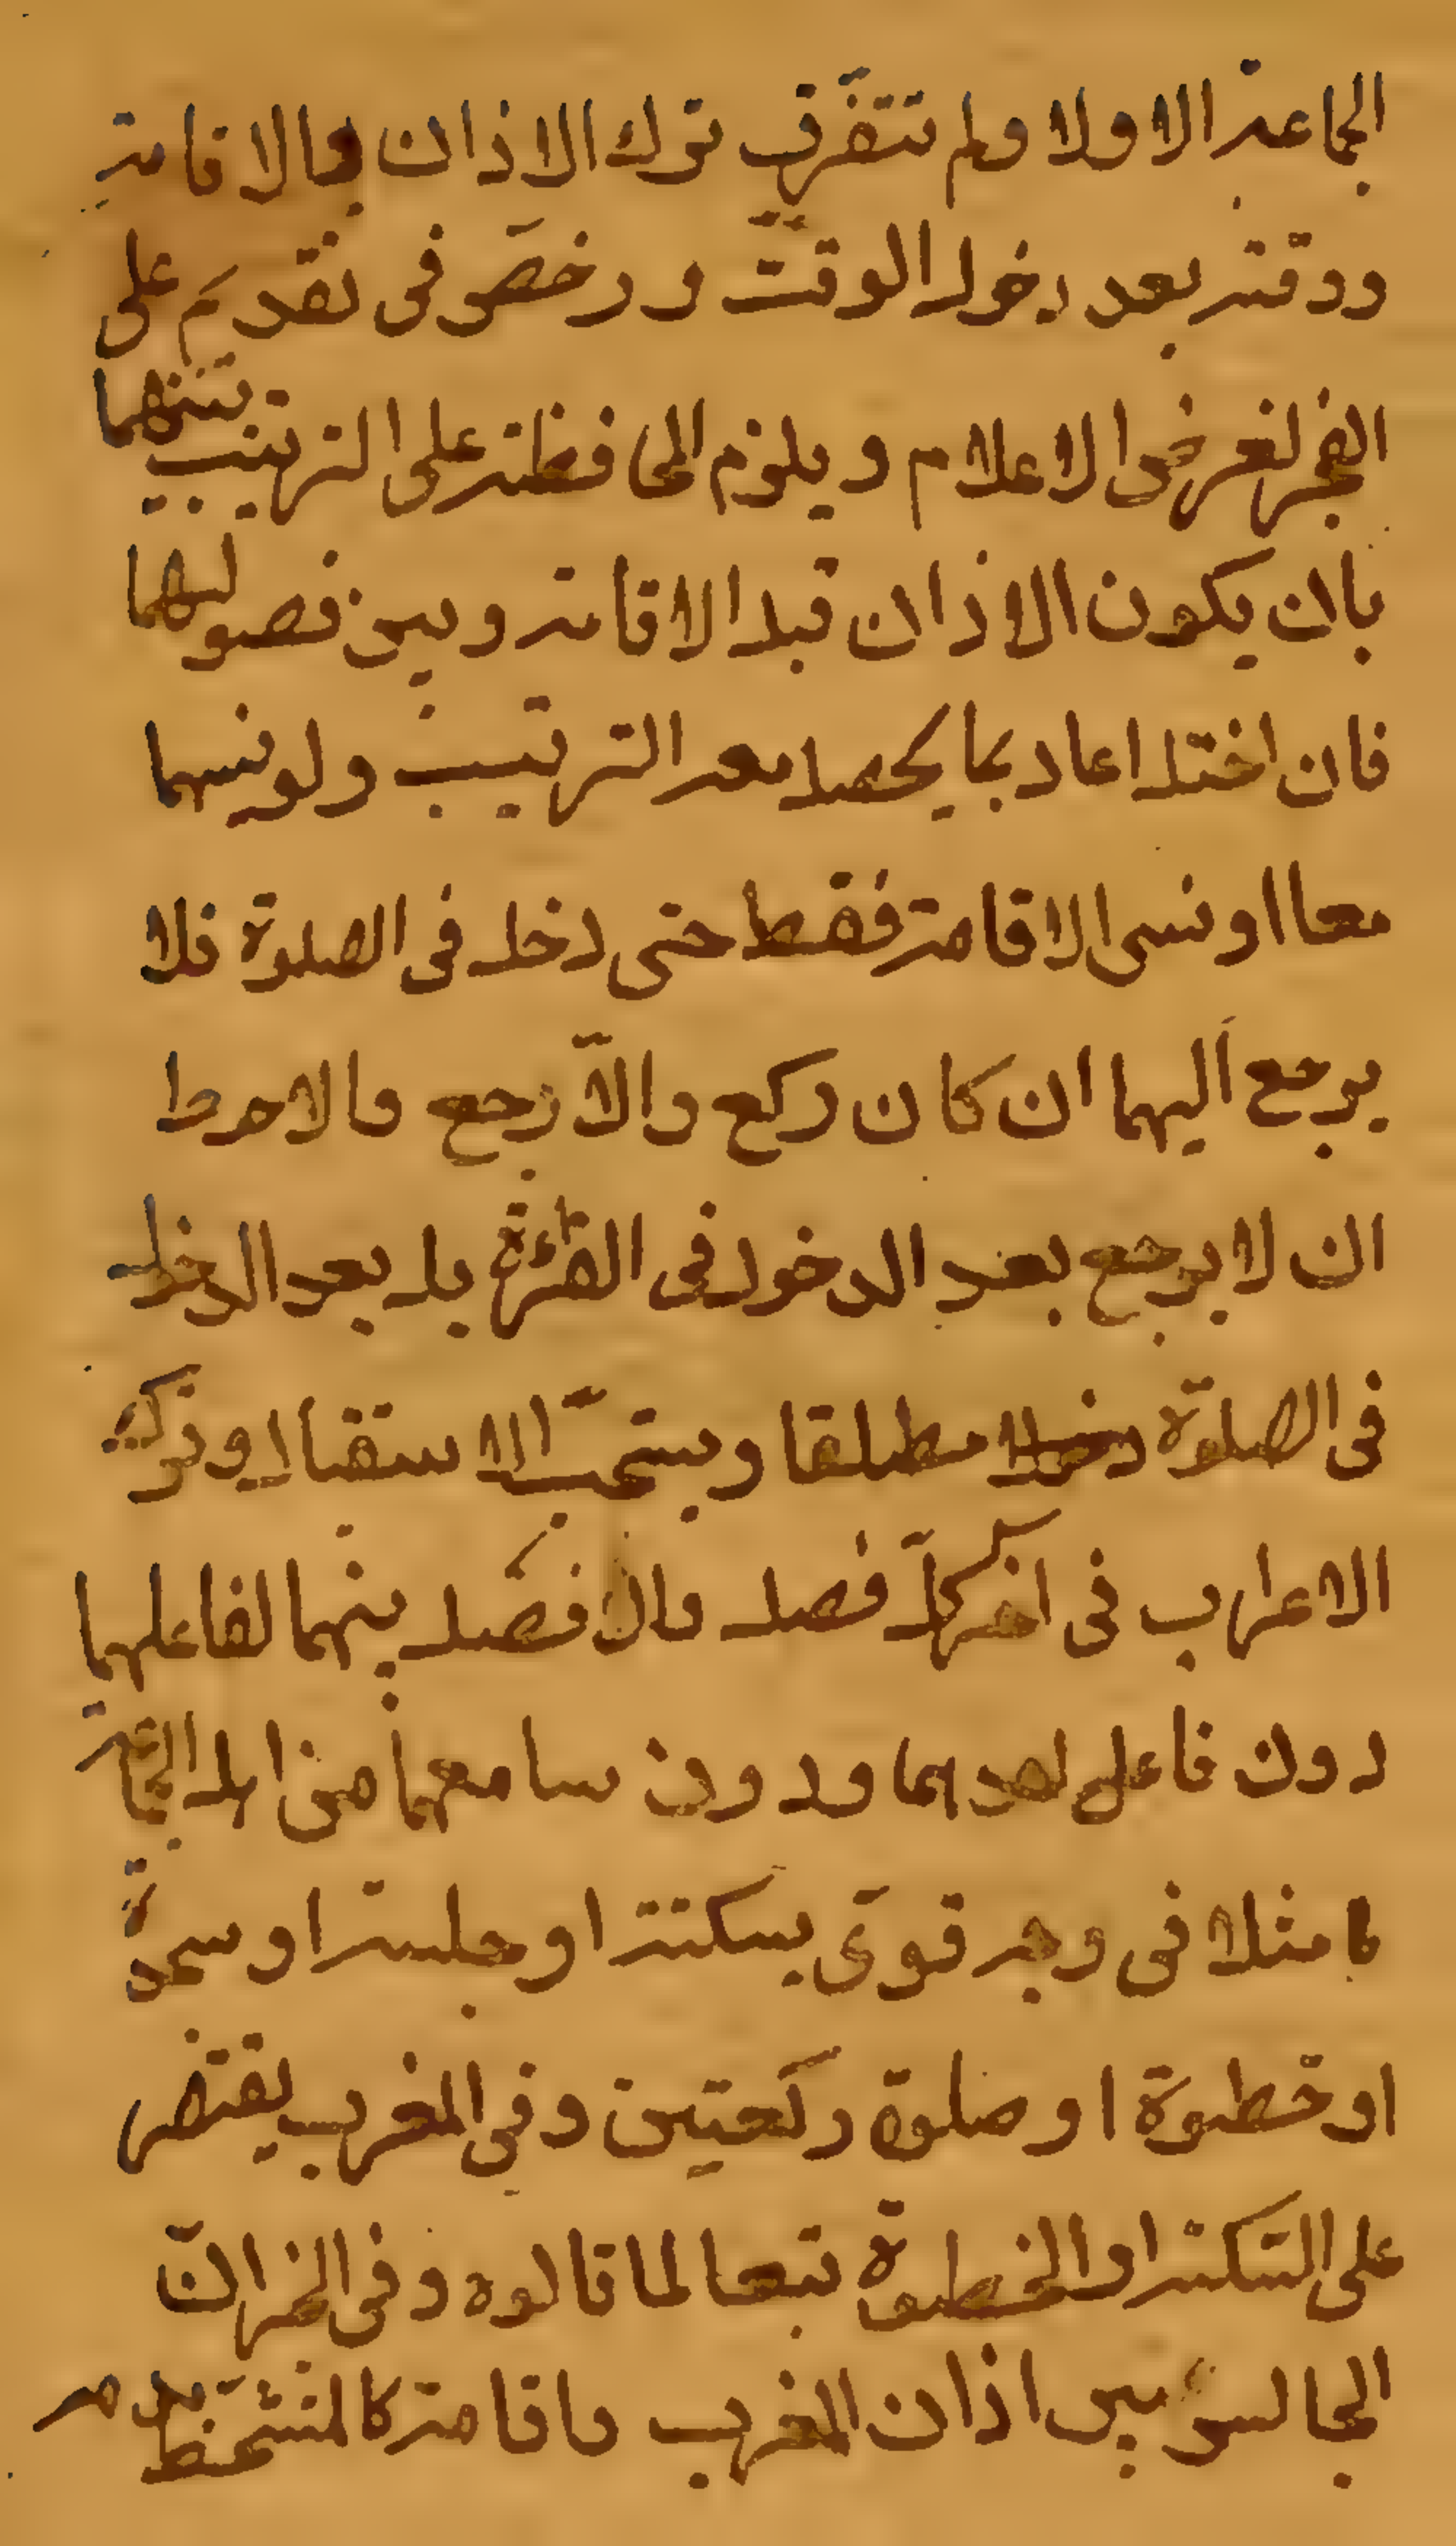 الجماعة الاولا ولم تتفرق ترك الاذان والاقامة
ووقته بعد دخول الوقت ورخصو في تقديم على
الفجر لغرض الاعلام ويلزم المحافظة على الترتيب بينهما
بان يكون الاذان قبل الاقامة وبين فصولهما
فان اختل اعاد بما يحصل معه الترتيب ولو نسيهما
معا او نسى الاقامة فقط حتى دخل في الصلوة فلا
يرجع اليهما ان كان ركع والّا رجع والاحوط
ان لا يرجع بعد الدخول في القرائة بل بعد الدخول
في الصلوة مطلقا ويستحبّ الاستقبال وترك
الاعراب في اخر كلّ فصل والافضل بينهما لفاعلهما
دون فاعل احدهما ودون سامعهما من اهل الجماعة
كامثلا في وجه قوىّ بسكتة او جلسة او سجدة
او خطوة او صلوة ركعتين وفي المغرب يقتصر
على السّكتة او الخطوة تبعا لما قالوه وفي الخبر انّ
الجالس بين اذان المغرب واقامة كالمتشحّط بدمه